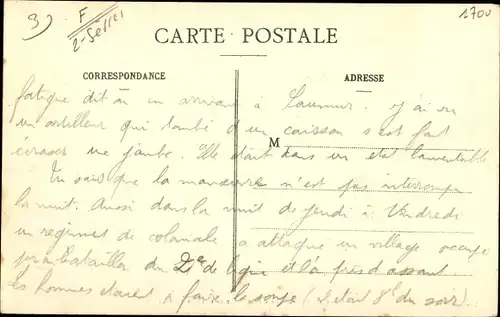 3)
F
2-Sèvres
1700
CARTE POSTALE
CORRESPONDANCE
ADRESSE
fatigue dit on en arrivant à Saumur. J'ai vu
un artilleur qui tombé d'un caisson s'est fait
M
écraser une jambe. Elle était dans un état lamentable
Tu sais que la manœuvre n'est pas interrompue
la nuit. Aussi dans la nuit de jeudi à Vendredi
un régiment de coloniale a attaqué un village occupé
par bataillon du 2e de ligne et l'a pris d'assaut
les hommes étaient à faire la soupe (il était 8h du soir).